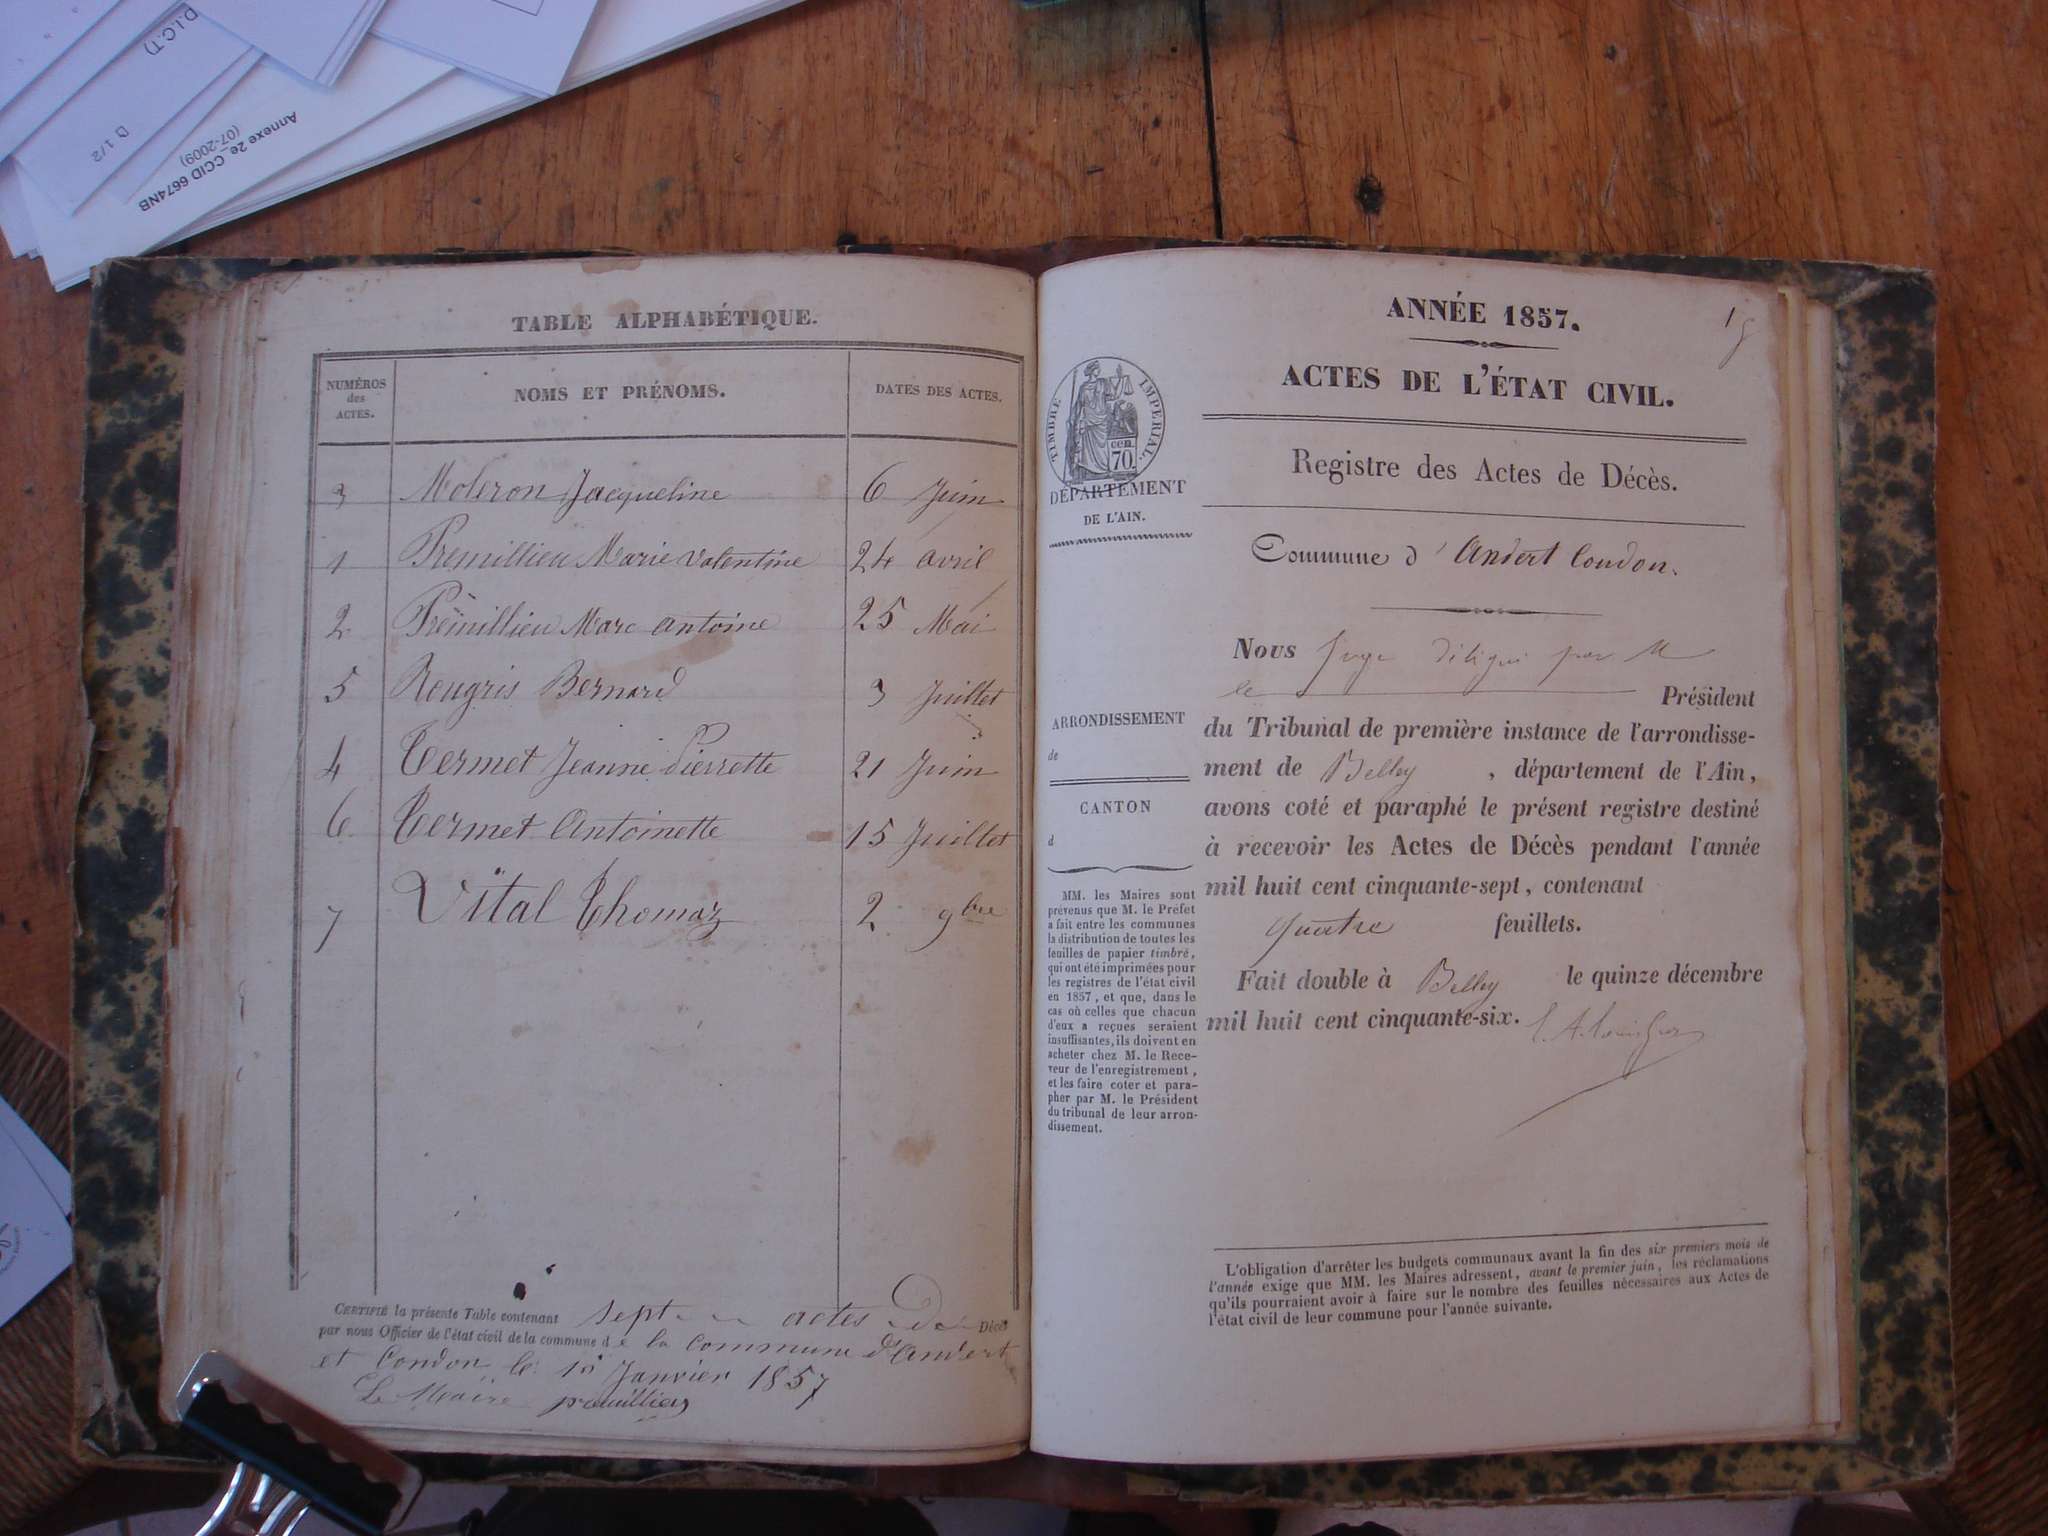 D.I.C.T)
D 1/3
Annexe 2e_CCID 6674NB
(07-2009)
TABLE ALPHABÉTIQUE.
NUMÉROS des ACTES.
NOMS ET PRÉNOMS.
DATES DES ACTES.
3 Moleron Jacqueline 6 Juin
1 Premillieu Marie Valentine 24 avril
2 Premillieu Marc antoine 25 Mai
5 Rougris Bernard 3 Juillet
4 Termet Jeanne Pierrette 21 Juin
6 Termet Antoinette 15 Juillet
7 Vital Thomaz 2 9bre
CERTIFIÉ la présente Table contenant sept actes de Décès
par nous Officier de l'état civil de la commune de la commune d'andert
et Condon le Janvier 1857
Le Maire premillieu
ANNÉE 1857.
1
ACTES DE L'ÉTAT CIVIL.
TIMBRE IMPERIAL.
cen. 70.
DÉPARTEMENT
DE L'AIN.
Registre des Actes de Décès.
Commune d'Andert Condon.
Nous Juge délégué par M
le Président
du Tribunal de première instance de l'arrondisse-
ment de Belley, département de l'Ain,
avons coté et paraphé le présent registre destiné
à recevoir les Actes de Décès pendant l'année
mil huit cent cinquante-sept, contenant
quatre feuillets.
Fait double à Belley le quinze décembre
mil huit cent cinquante-six.
ARRONDISSEMENT
de
CANTON
d
MM. les Maires sont
prévenus que M. le Préfet
a fait entre les communes
la distribution de toutes les
feuilles de papier timbré,
qui ont été imprimées pour
les registres de l'état civil
en 1857, et que, dans le
cas où celles que chacun
d'eux a reçues seraient
insuffisantes, ils doivent en
acheter chez M. le Rece-
veur de l'enregistrement,
et les faire coter et para-
pher par M. le Président
du tribunal de leur arron-
dissement.
L'obligation d'arrêter les budgets communaux avant la fin des six premiers mois de
l'année exige que MM. les Maires adressent, avant le premier juin, les réclamations
qu'ils pourraient avoir à faire sur le nombre des feuilles nécessaires aux Actes de
l'état civil de leur commune pour l'année suivante.